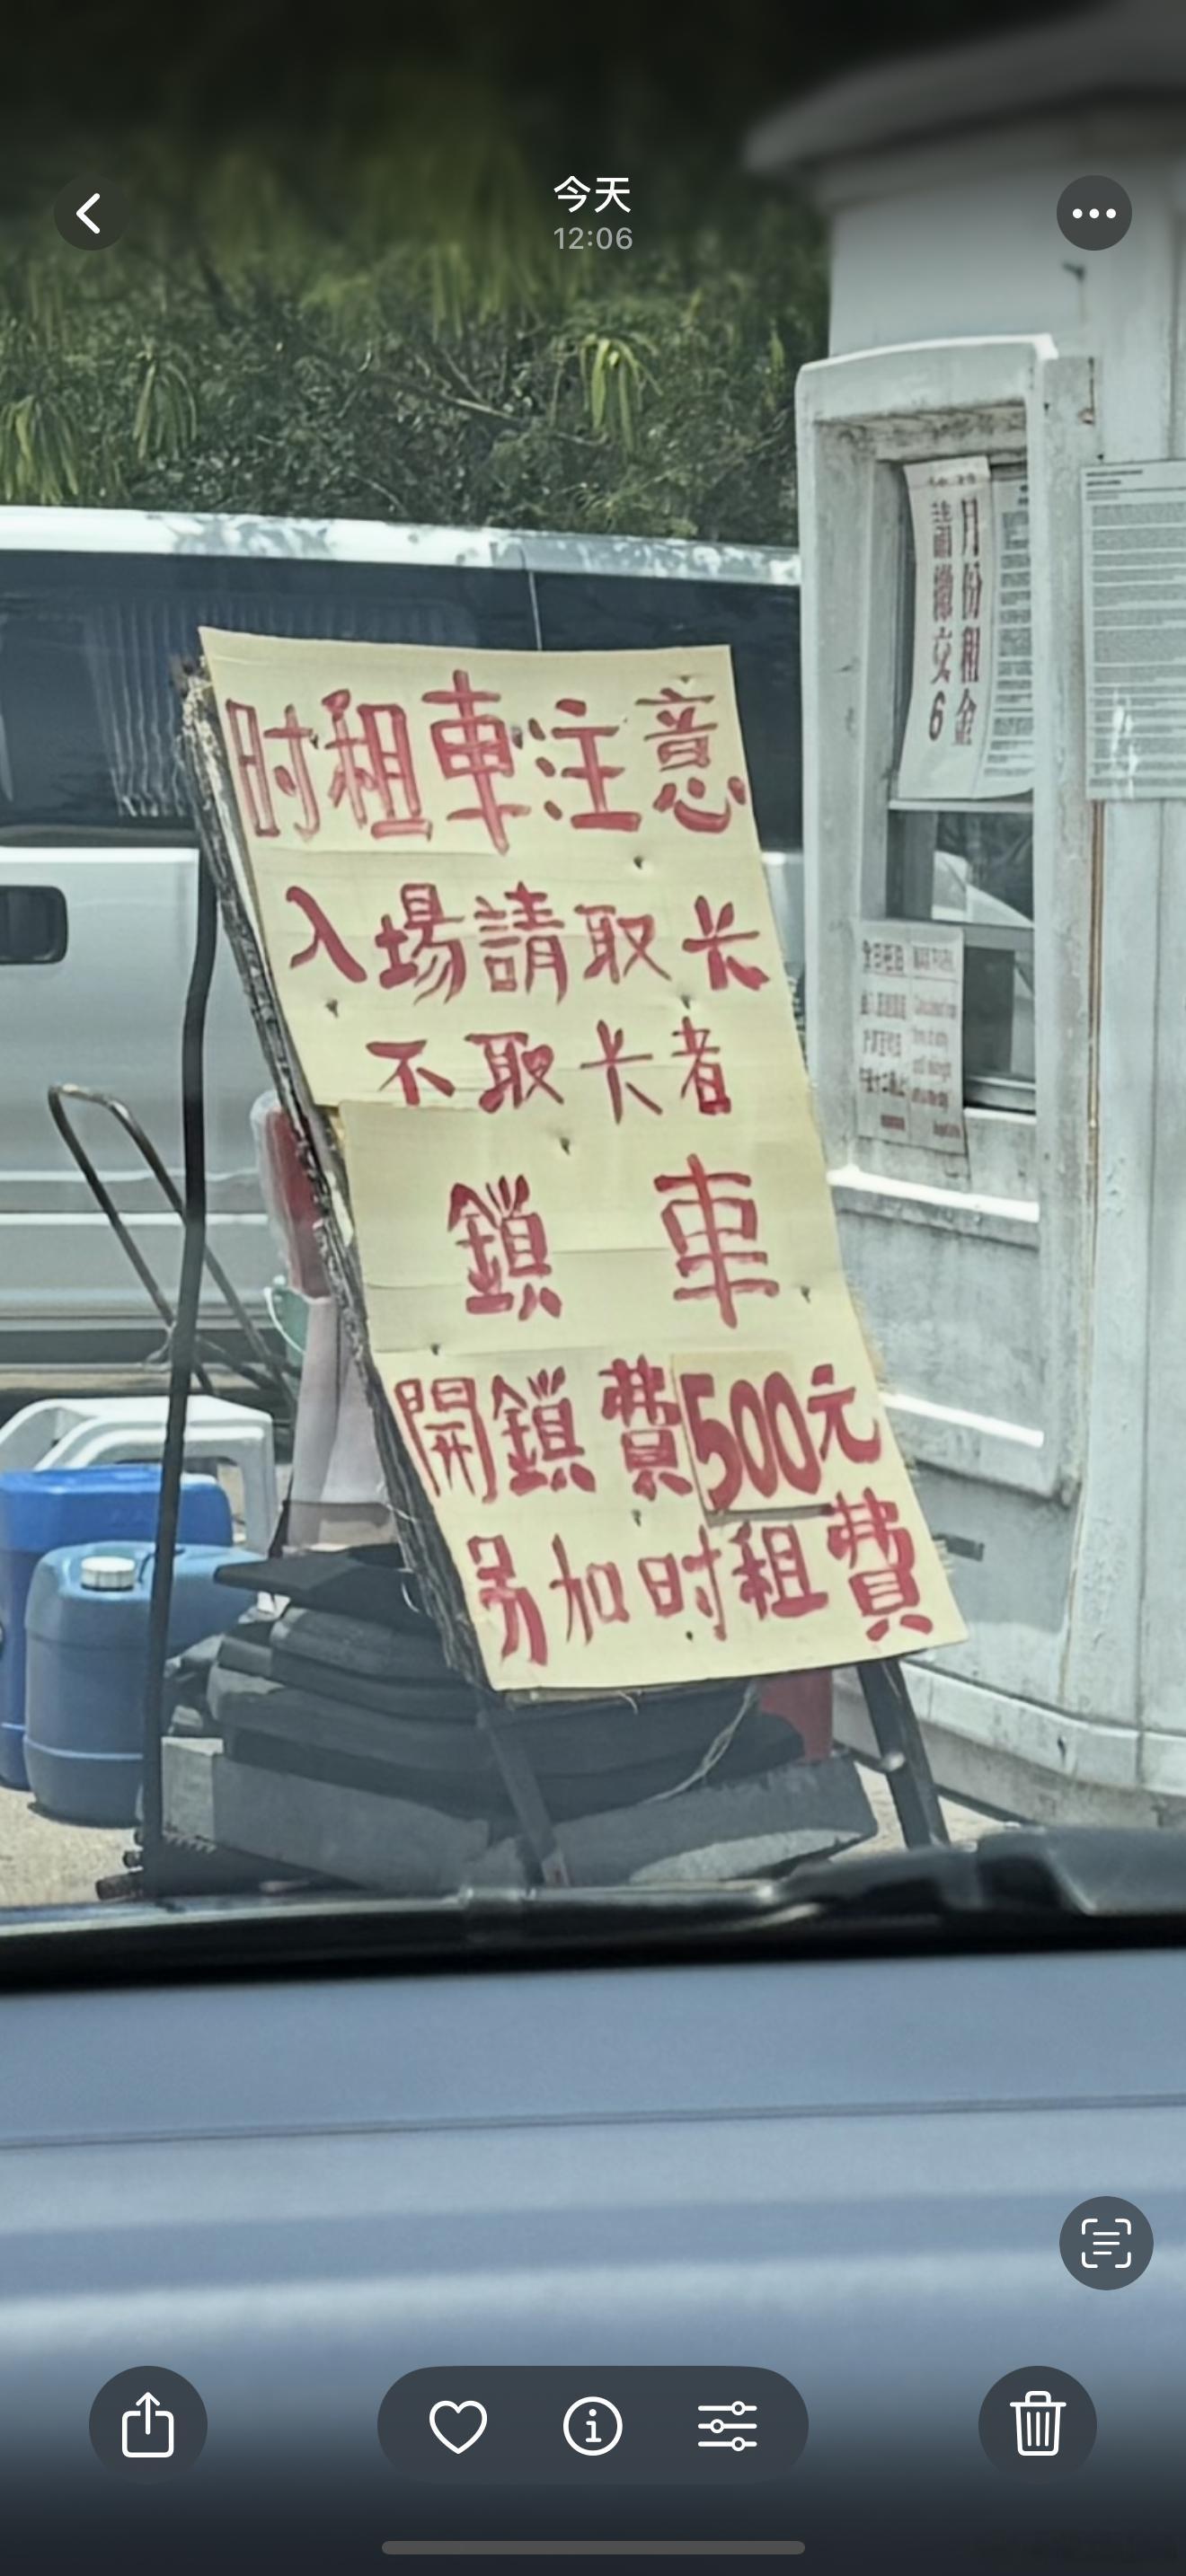 今天
12:06
时租車注意
入場請取卡
不取卡者
鎖車
開鎖費500元
另加时租費
請繳交6
月份租金